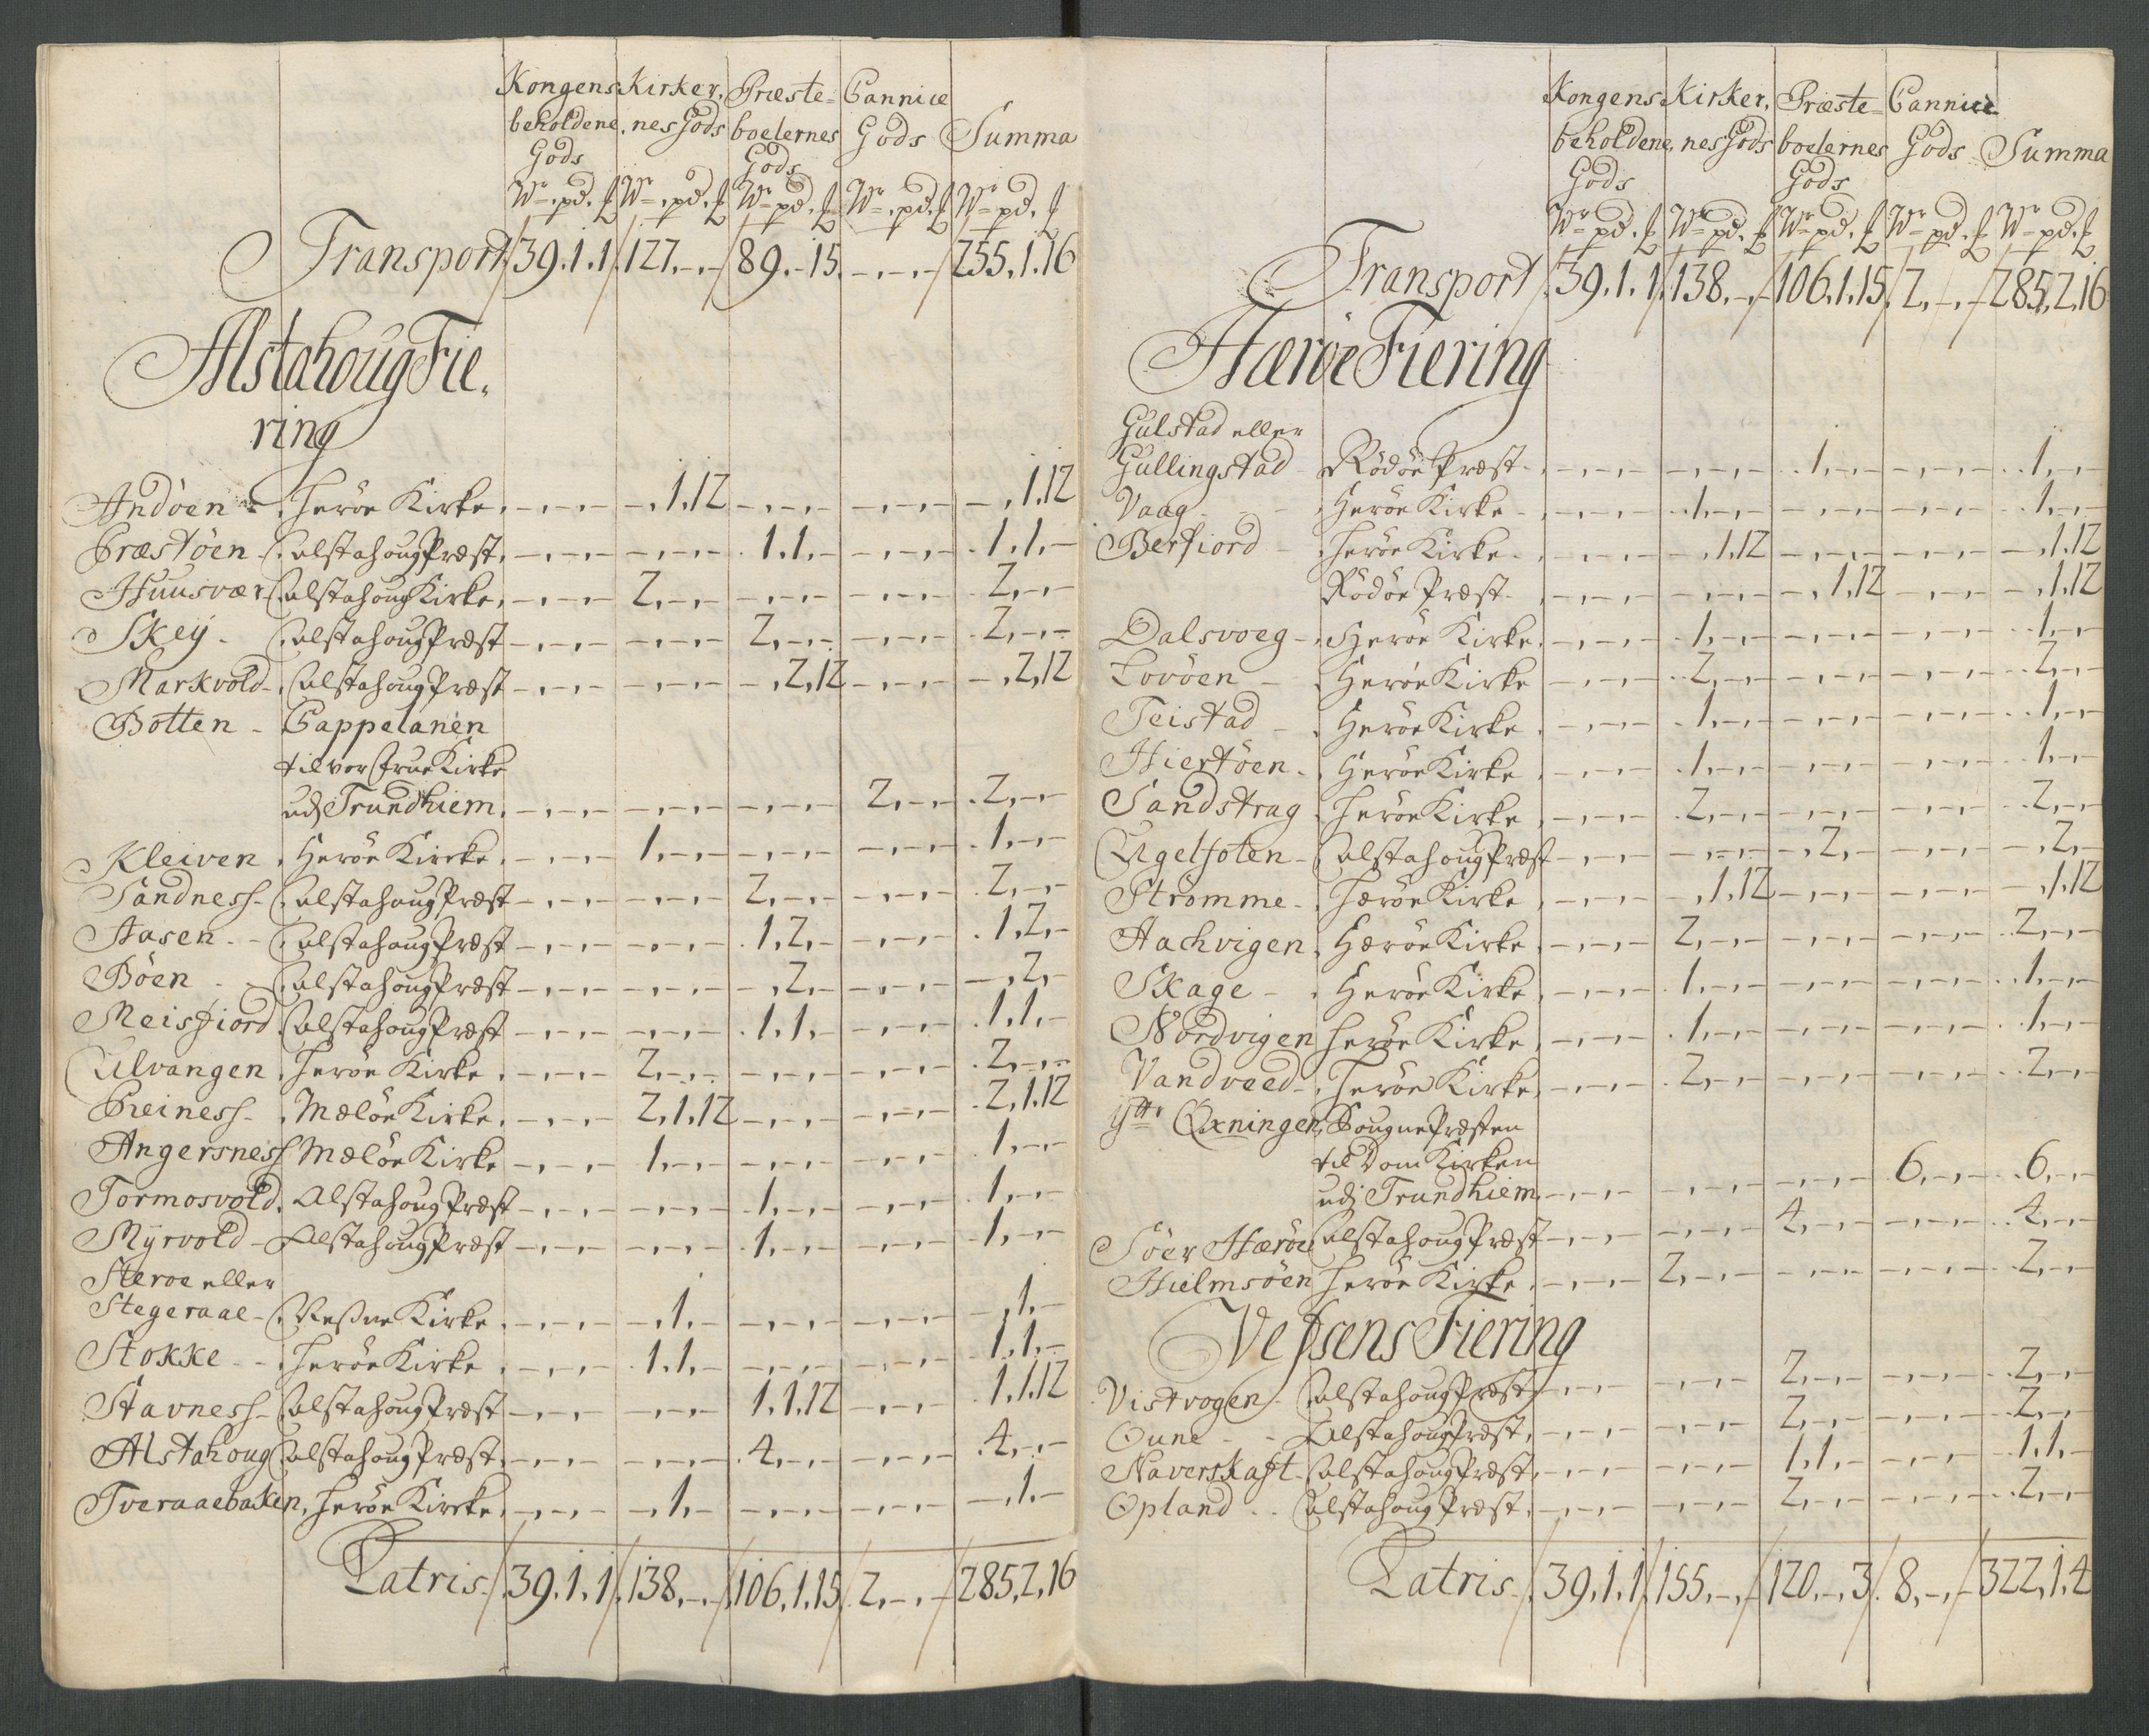 Kongens Kirker, Præste= Cannice
beholdene, nes Gods boelernes Gods Summa
Gods Gods
Wr=.pd.℔ Wr=.pd.℔ Wr=pd.℔ Wr=.pd.℔ Wr=pd.℔
Transport 39.1.1 127.-.- 89.-15. -.-.- 255.1.16
Alstahoug Fie,
ring
Andöen - Heröe Kirke. -.-.- -.1.12 -.-.- -.-.- -.1.12
Præstöen - Alstahoug Præst. -.-.- -.-.- 1.1.- -.-.- 1.1.-
Huusvær Alstahoug Kirke. -.-.- 2.-.- -.-.- -.-.- 2.-.-
Skeÿ - Alstahoug Præst -.-.- -.-.- 2.-.- -.-.- 2.-.-
Markvold - Alstahoug Præst -.-.- -.-.- -.2.12 -.-.- -.2.12
Botten - Cappelanen
til vor frue Kirke
udj Trundhiem. -.-.- -.-.- -.-.- 2.-.- 2.-.-
Kleiven . Heröe Kircke. -.-.- 1.-.- -.-.- -.-.- 1.-.-
Sandness - Alstahoug Præst -.-.- -.-.- 2.-.- -.-.- 2.-.-
Aasen - - Alstahoug Præst -.-.- -.-.- 1.2.- -.-.- 1.2.-
Böen - - Alstahoug Præst -.-.- -.-.- -.2.- -.-.- -.2.-
Meisfiord Alstahoug Præst -.-.- -.-.- 1.1.- -.-.- 1.1.-
Ulvangen . Heröe Kirke . -.-.- 2.-.- -.-.- -.-.- 2.-.-
Greiness - . Mælöe Kirke. -.-.- 2.1.12 -.-.- -.-.- 2.1.12
Angersness Mælöe Kirke -.-.- 1.-.- -.-.- -.-.- 1.-.-
Tormosvold . Alstahoug Præst -.-.- -.-.- 1.-.- -.-.- 1.-.-
Mÿrvold - Alstahoug Præst -.-.- -.-.- 1.-.- -.-.- 1.-.-
Steroe eller
Stegeraae - Veßne Kirke . -.-.- -.1.- -.-.- -.-.- -.1.-
Stokke - - . Heröe Kirke . -.-.- 1.1.- -.-.- -.-.- 1.1.-
Stavness - Alstahoug Præst -.-.- -.-.- 1.1.12 -.-.- 1.1.12
Alstahoug Alstahoug Præst. -.-.- -.-.- 4.-.- -.-.- 4.-.-
Tveraaebaken, Heröe Kircke. -.-.- -.1.- -.-.- -.-.- -.1.-
Latris 39.1.1 138.-.- 106.1.15 2.-.- 285.2.16
Kongens Kirker, Præste= Cannice
beholdene, nes Gods boelernes Gods Summa
Gods Gods
Wr=pd.℔ Wr=pd.℔ Wr=pd.℔ Wr=pd.℔ Wr=pd.℔
Transport 39.1.1 138.-.- 106.1.15 2.-.- 285.2.16
Hæröe Fiering
Gulstad eller
Gullingstad - Rödöe Præst -.-.- -.-.- 1.-.- -.-.- 1.-.-
Vaag - - Heröe Kirke -.-.- 1.-.- -.-.- -.-.- 1.-.-
Berfiord - . Heröe Kirke . -.-.- -.1.12 -.-.- -.-.- -.1.12
Rödöe Præst -.-.- -.-.- -.1.12 -.-.- -.1.12
Dalsvoeg - . Heröe Kirke. -.-.- 1.-.- -.-.- -.-.- 1.-.-
Lovöen - . Heröe Kirke -.-.- 2.-.- -.-.- -.-.- 2.-.-
Teistad - . Heröe Kirke . -.-.- 1.-.- -.-.- -.-.- 1.-.-
Hiertöen . . Heröe Kirke . -.-.- 1.-.- -.-.- -.-.- 1.-.-
Sandstrag . Heröe Kirke . -.-.- 2.-.- -.-.- -.-.- 2.-.-
Ugelfoten - Alstahoug Præst -.-.- -.-.- -.2.- -.-.- -.2.-
Stromme - . Heröe Kirke . -.-.- -.1.12 -.-.- -.-.- -.1.12
Aachvigen . Hæröe Kirke. -.-.- 2.-.- -.-.- -.-.- 2.-.-
Skage - . Heröe Kirke . -.-.- 1.-.- -.-.- -.-.- 1.-.-
Nordvigen Heröe Kirke. -.-.- 1.-.- -.-.- -.-.- 1.-.-
Vandveed - . Heröe Kirke. -.-.- 2.-.- -.-.- -.-.- 2.-.-
ÿttr Öxningen Sougne Præsten
til Dom Kirken
udi Trundhiem. -.-.- -.-.- -.-.- 6.-.- 6.-.-
Söer Hæröe Alstahoug Præst -.-.- -.-.- 4.-.- -.-.- 4.-.-
Hielmsöen Heröe Kirke. -.-.- 2.-.- -.-.- -.-.- 2.-.-
Vefsens Fiering
Vistvogen - Alstahoug Præst -.-.- -.-.- 2.-.- -.-.- 2.-.-
Oune - - Alstahoug Præst. -.-.- -.-.- 2.-.- -.-.- 2.-.-
Naverskaft - Alstahoug Præst. -.-.- -.-.- 1.1.- -.-.- 1.1.-
Opland . . Alstahoug Præst. -.-.- -.-.- 2.-.- -.-.- 2.-.-
Latris 39.1.1 155.-.- 120.-.3 8.-.- 322.1.4